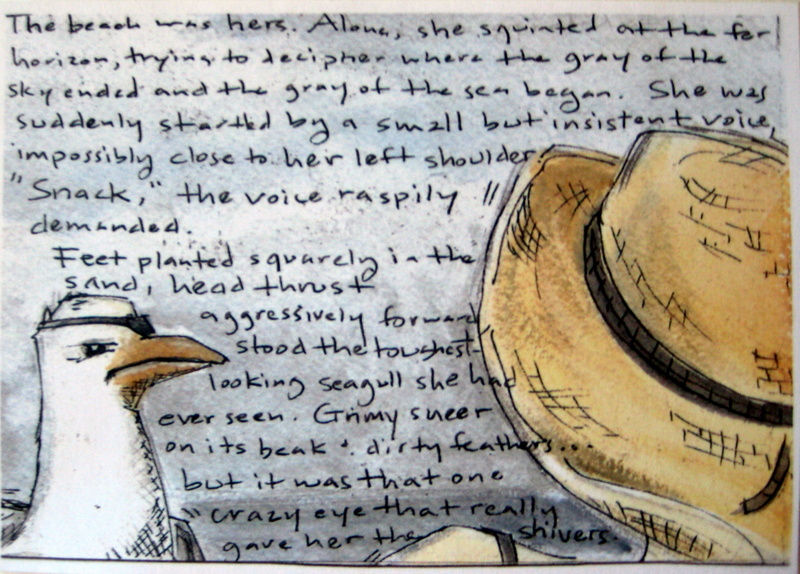 The beach was hers. Alone, she squinted at the far
horizon, trying to decipher where the gray of the
sky ended and the gray of the sea began. She was
suddenly startled by a small but insistent voice,
impossibly close to her left shoulder.
"Snack," the voice raspily
demanded.
Feet planted squarely in the
sand, head thrust
aggressively forward
stood the toughest-
looking seagull she had
ever seen. Grimy sneer
on its beak & dirty feathers...
but it was that one
crazy eye that really
gave her the shivers.